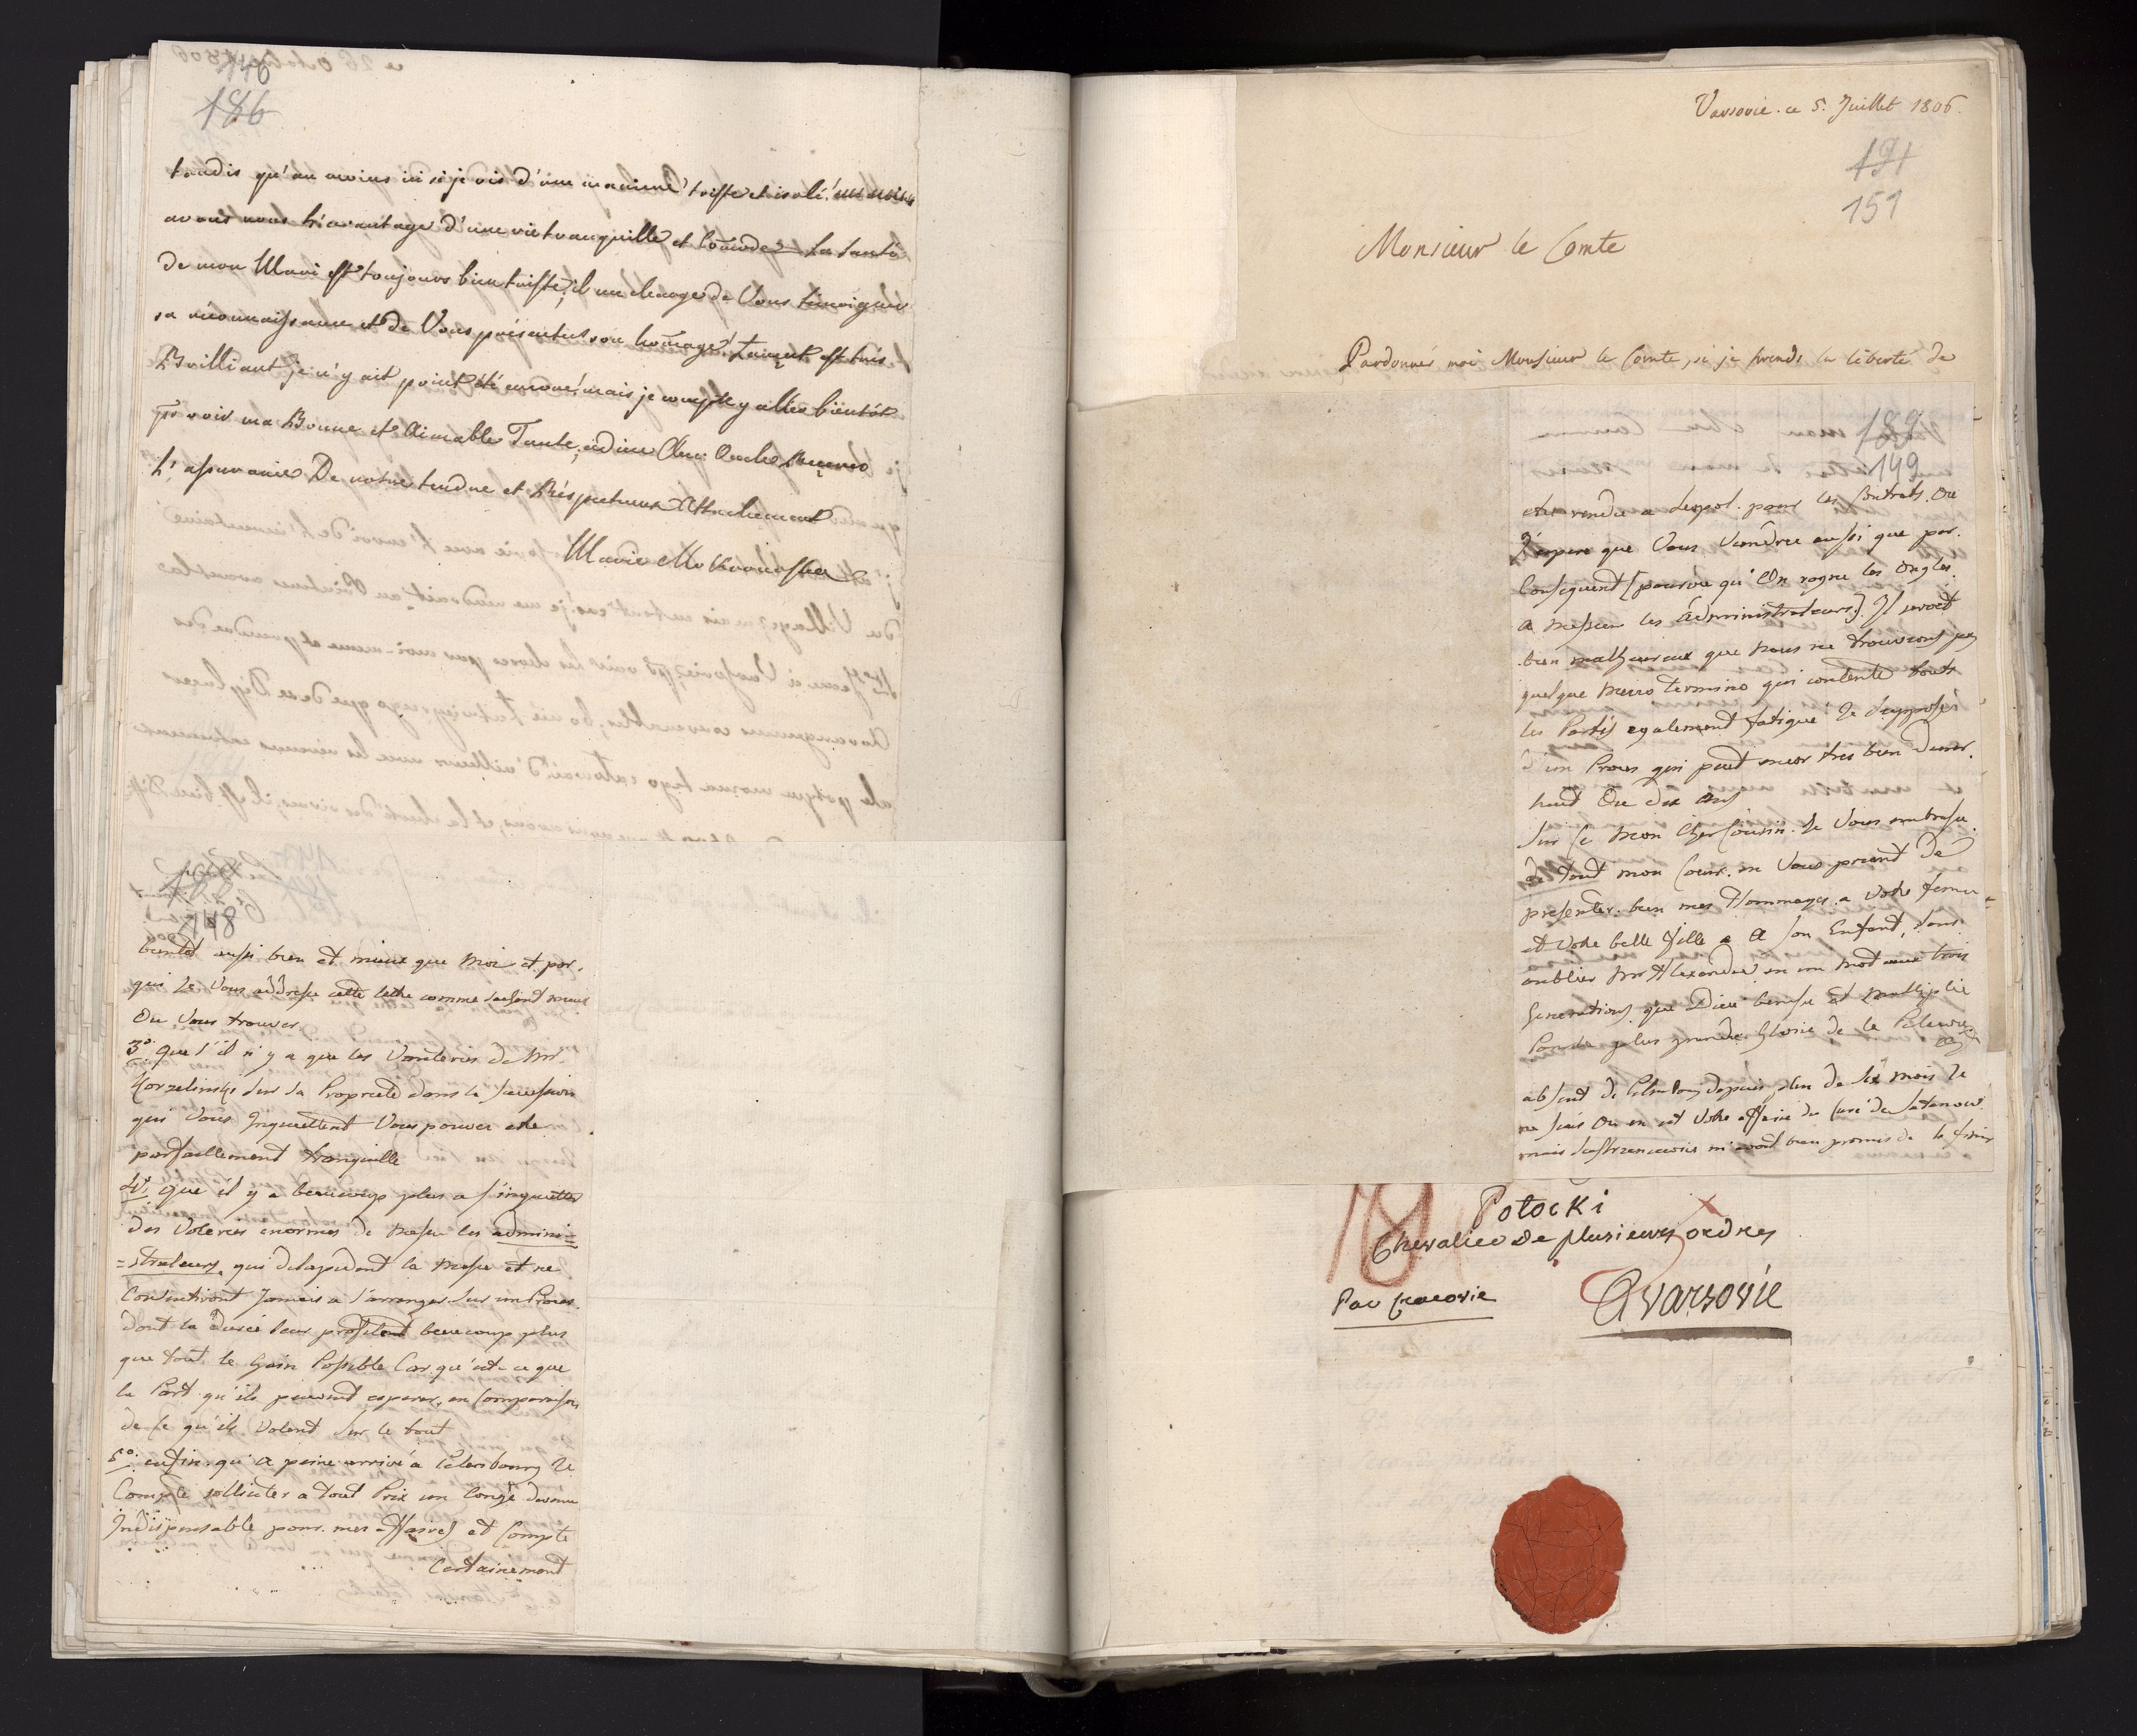 146
186
tandis qu'au moins ici si je vis d'une manierre triste et isolé! au moins
avons nous l'avantage d'une vie tranquille et comode – La santé
de mon Mari est toujours bien triste, il me charge de Vous témoigner
sa réconnaissance et de Vous présenter son homage! Łańcut est très
Brilliant je n'y ait point été encore! mais je compte y aller bientôt
pr voir ma Bonne et Aimable Tante, adieu Cher Oncle
L'assurance De notre tendre et Réspectueux Attachement
Marie Mokronoska
148
bientot aussi bien et mieux que moi et par
qui Je Vous addresse cette lettre comme sachant mieux
Ou Vous trouver.
3º. Que s'il n'y a que les Vanteries de Mr.
Korzelinski sur sa Proprieté dans la succession
qui Vous Inquiettent Vous pouvez etre
parfaittement tranquille
4º. Que il y a beaucoup plus a s'inquietter
des Voleries enormes de messrs les admini=
=strateurs qui dilapident la masse et ne
Consentiront Jamais a s'arranger sur un Proces
dont la Durée leur profitent beaucoup plus
que tout le Gain Possible Car qu'est-ce que
la Part qu'ils peuvent esperer, en Comparaison
de ce qu'ils Volent sur le tout
5º. enfin qu'a peine arrivé a Petersbourg Je
Compte solliciter a tout Prix un Congé devenu
Indispensable pour mes affaires et Compte
Certainement
Varsovie. ce 5. Juillet 1806.
191
151
Monsieur le Comte
Pardonnés moi Monsieur le Comte, si je prends la liberté de
189
149
etre rendu a Leopol. pour les Contrats. Ou
J'espere que Vous Viendrez aussi que par
Consequent [pourvu qu'On rogne les Ongles
a messieurs les Administrateurs]. Il seroit
bien malheureux que nous ne trouvions pas
quelque mezzo termino qui contente touts
les Partis egalement fatigué Je suppose
d'un Proces qui peut encor tres bien durer
huit Ou dix ans
Sur ce mon Cher Cousin. Je Vous embrasse
de tout mon Coeur. en Vous priant De
presenter bien mes Hommages a Votre femme
et Votre belle fille a A son Enfant, sans
oublier Mr Alexandre en un mot aux trois
Generations que Dieu benisse et multiplie
Pour la plus grande Gloire de la Pilawa.
absent de Petersbourg depuis plus de Six mois Je
ne sais Ou en est Votre affaire du Curé de Satanow
mais m'avoit bien promis de la finir
Potocki
Chevalier de plusieurs ordres
Par Cracovie
A Varsovie